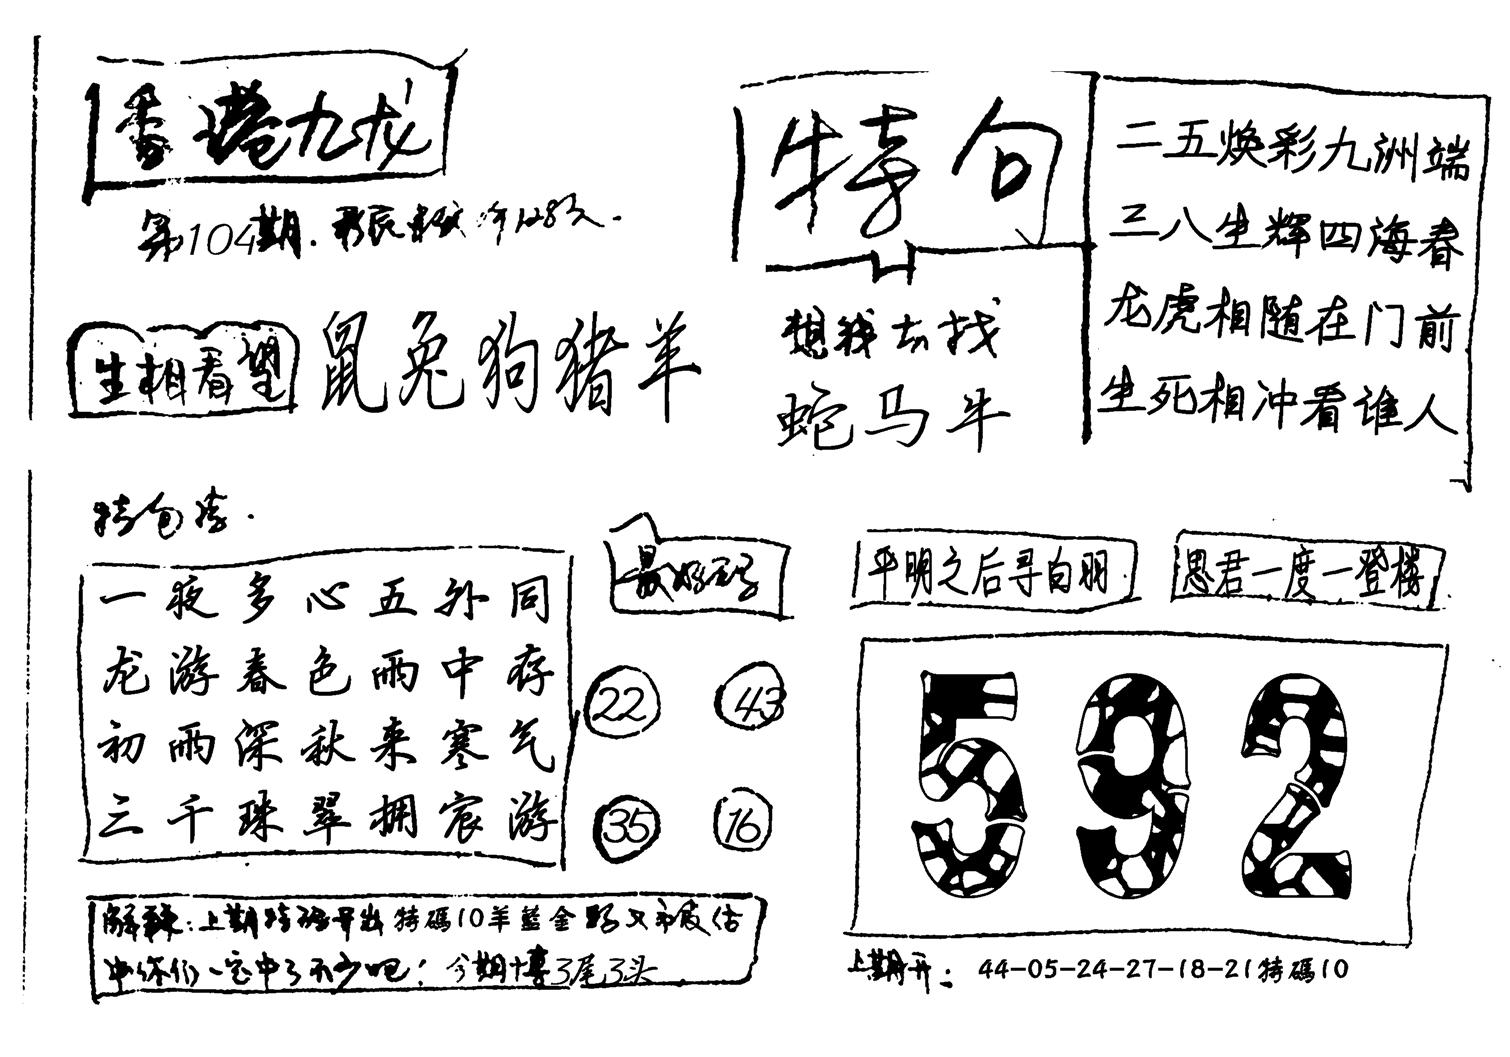 香港九龙
第104期.
生相看望
鼠兔狗猪羊
特句
想我去找
蛇马牛
二五焕彩九洲端
三八生辉四海春
龙虎相随在门前
生死相冲看谁人
特包诗.
一夜多心五外同
龙游春色雨中存
初雨深秋来寒气
三千珠翠拥宸游
22
43
35
16
平明之后寻白羽
思君一度一登楼
592
上期开: 44-05-24-27-18-21特碼10
上期特码开出特碼10羊藍金
你们一定中了不少吧! 今期博3尾3头